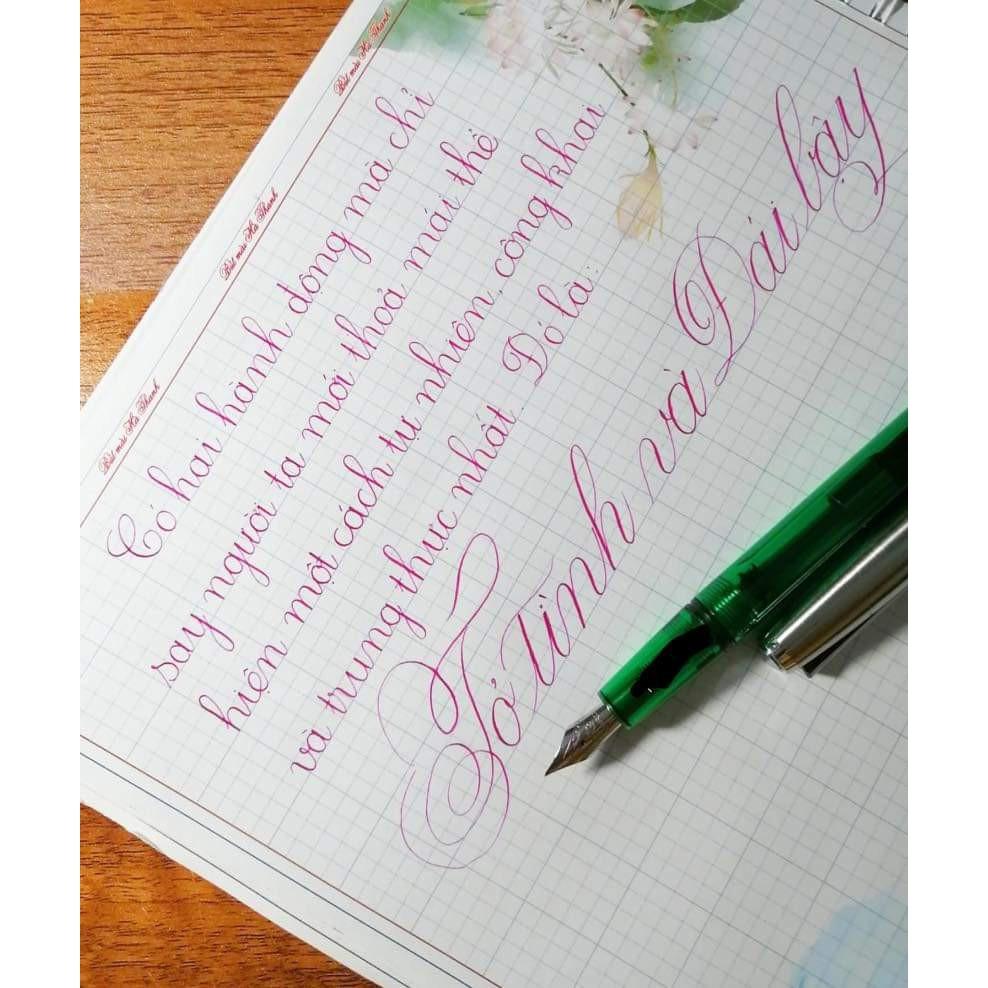 Bút mài Hà Thanh
Bút mài Hà Thanh
Bút mài Hà Thanh
Có hai hành động mà chỉ
say người ta mới thoả mái thể
hiện một cách tự nhiên, công khai
và trung thực nhất Đó là:
Tỏ Tình và Đái bậy